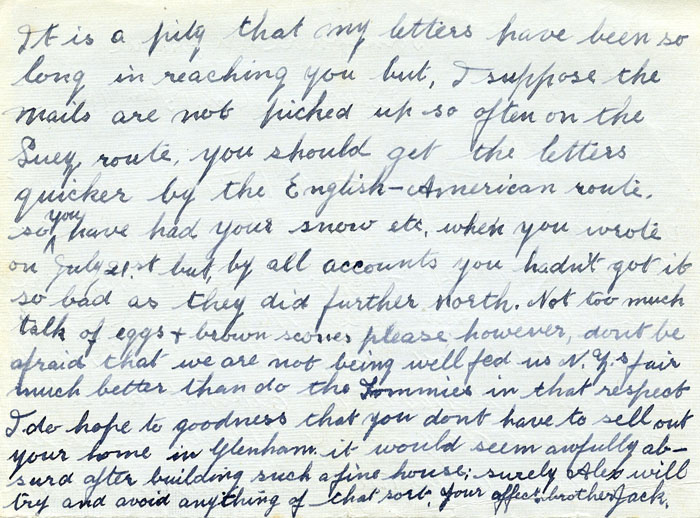 It is a pity that my letters have been so
long in reaching you but, I suppose the
mails are not picked up so often on the
Suez, route, you should get the letters
quicker by the English-American route.
so you have had your snow etc, when you wrote
on July 21.st but, by all accounts you hadn't got it
so bad as they did further north. Not too much
talk of eggs + brown scones please however, dont be
afraid that we are not being well fed us N.Z.s fair
much better than do the Tommies in that respect
I do hope to goodness that you dont have to sell out
your home in Glenham. it would seem awfully ab-
surd after building such a fine house; surely Alex will
try and avoid anything of that sort, your affect. brother Jack.